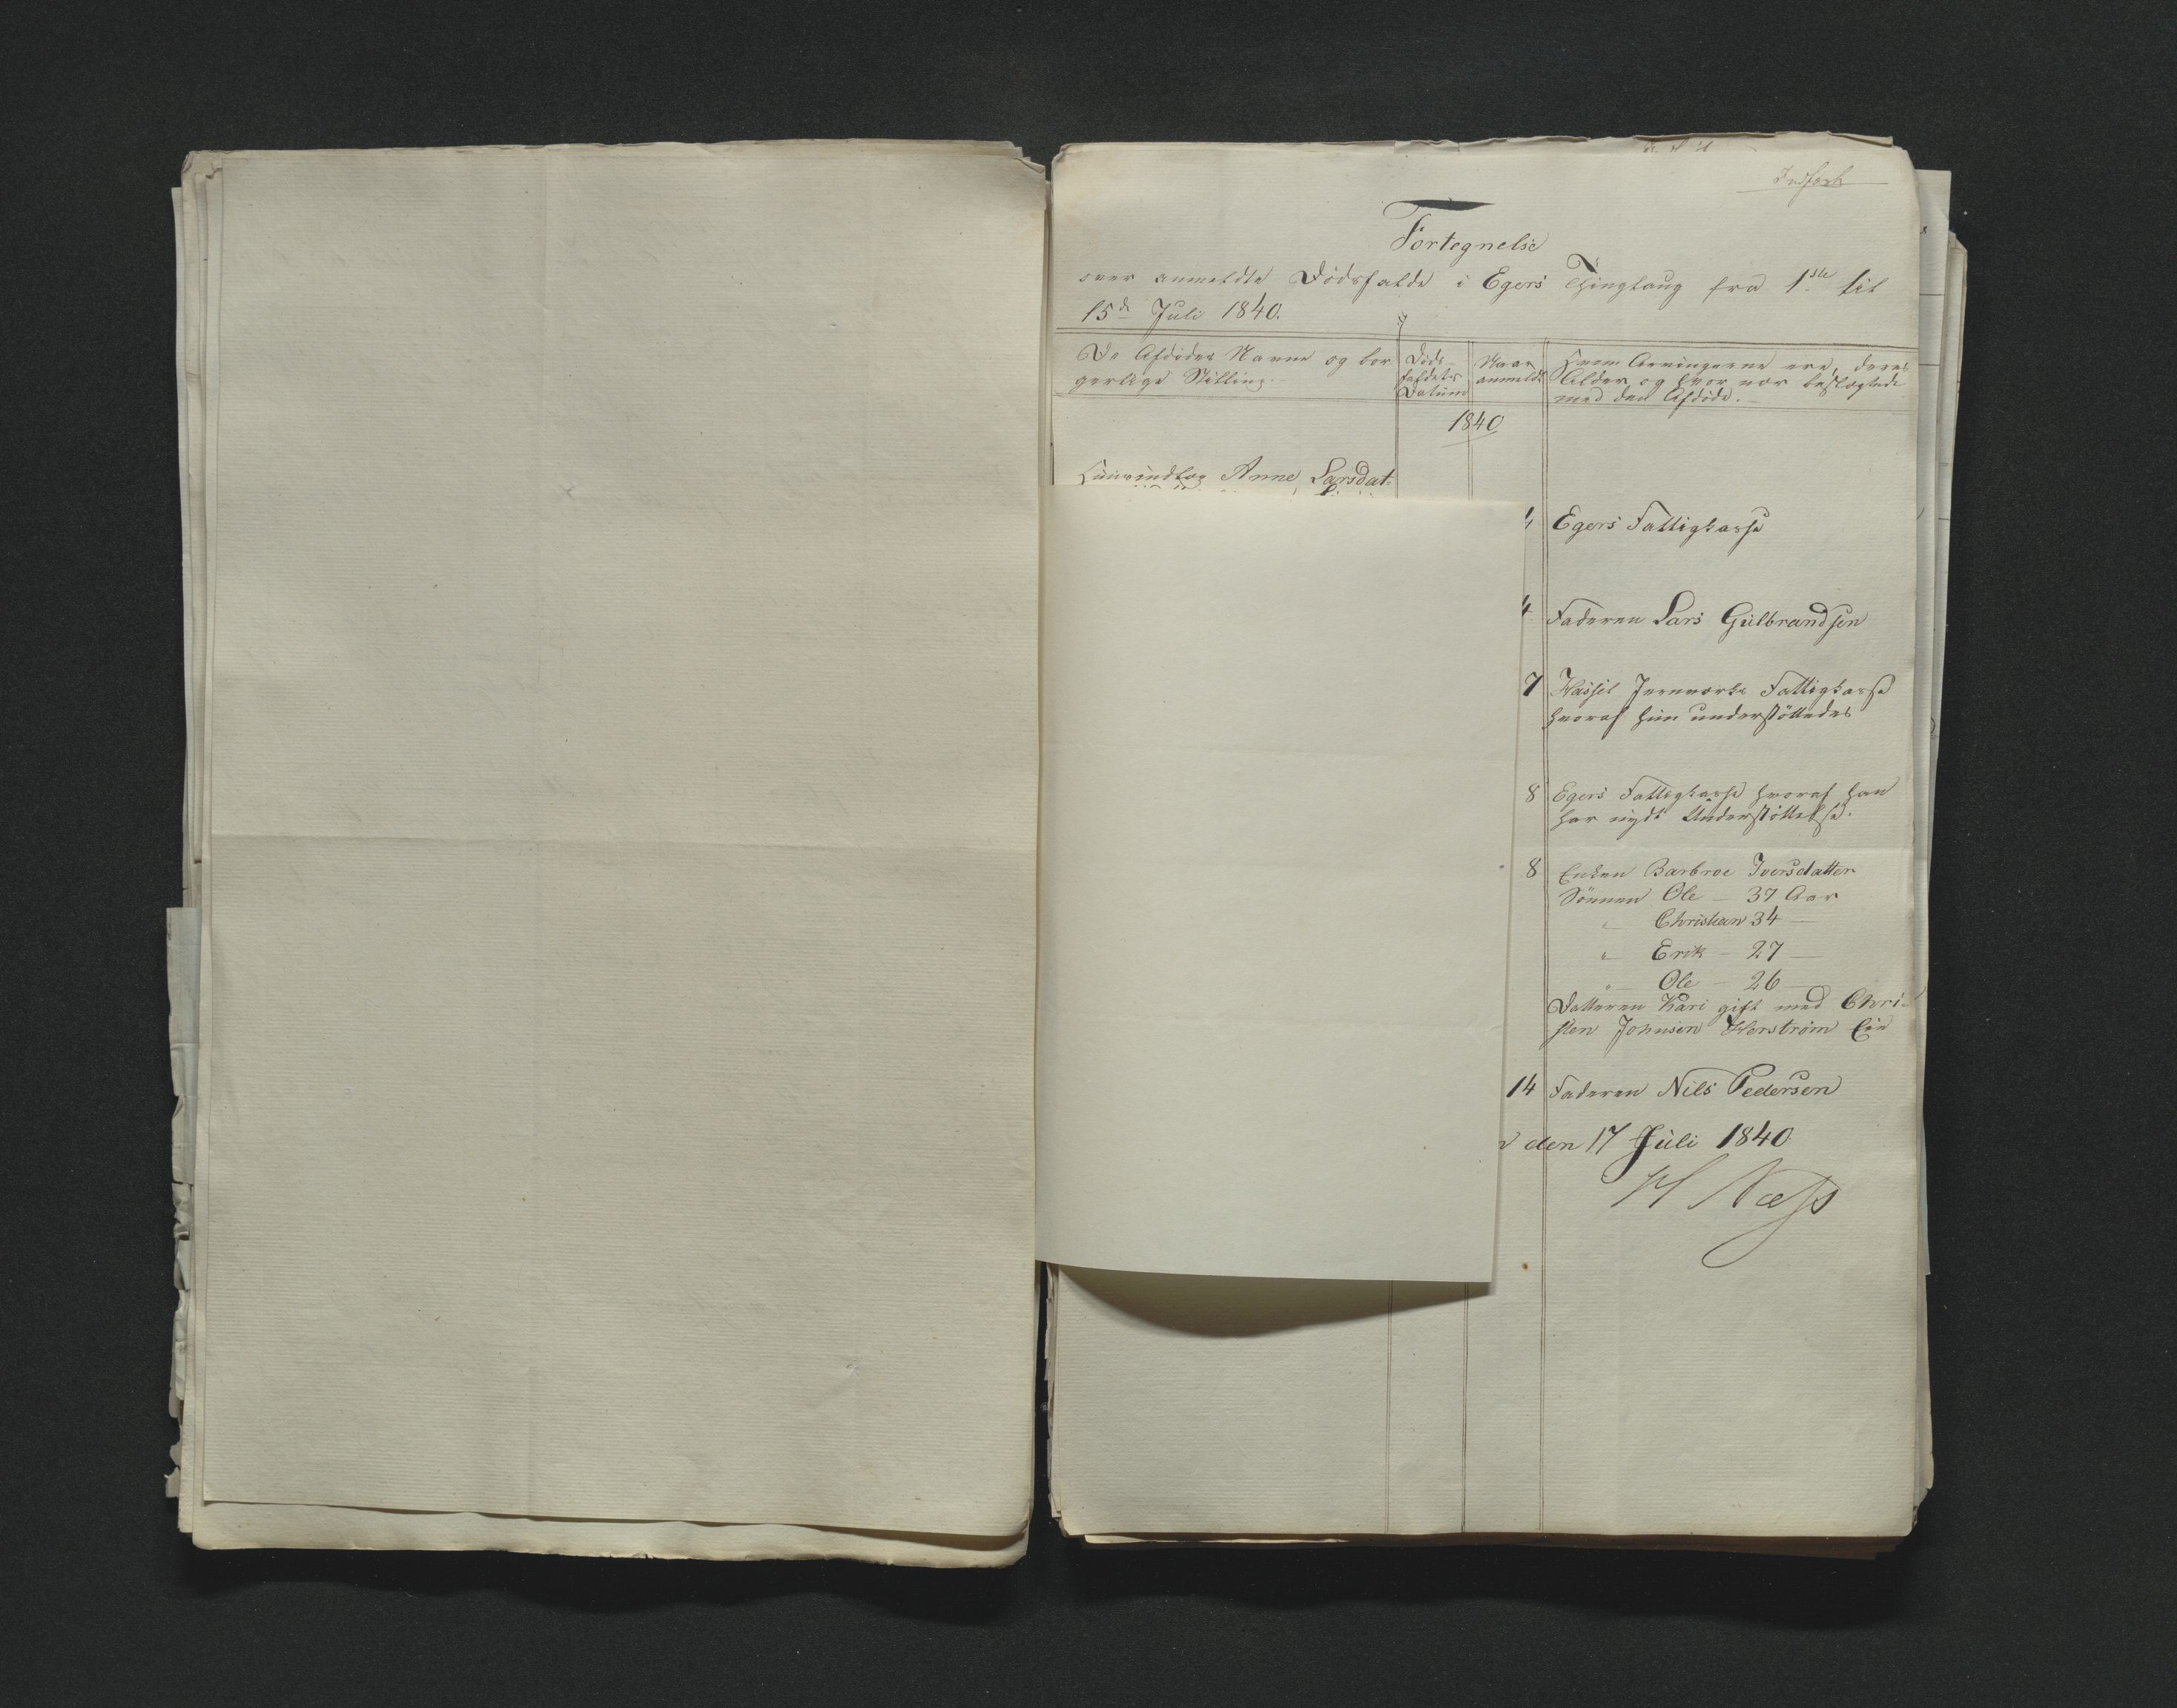 Indført
Fortegnelse
over anmeldte Dødsfalde i Egers Thinglaug fra 1ste til
15de Juli 1840.
De Afdødes Navne og bor
gerlige Stilling.
Døds
faldets
Datum
Naar
anmeldt
Hvem Arvingerne ere, deres
Alder og hvor nær beslægtede
med den Afdøde.
1840
Huusindlog Anne Larsdat
Egers Fattigkasse
4 Faderen Lars Gulbrandsen
7 Hassel Jernværks Fattigkasse
hvoraf hun understöttedes
8 Egers Fattigkasse hvoraf han
har nydt Understöttelse.
8 Enken Barbroe Iversdatter
Sönnen Ole - 37 Aar
" Christian 34 —
" Erik - 27 —
" Ole - 26 —
Datteren Kari gift med Chri-
sten Johnsen Werström Eie
14 Faderen Nils Pedersen
den 17 Juli 1840
H Næss